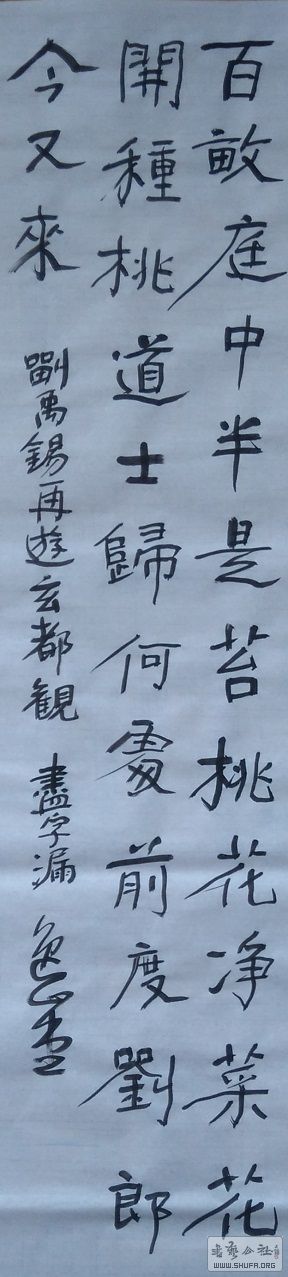 百畝庭中半是苔桃花净菜花
開種桃道士歸何處前度劉郎
今又來
劉禹錫再遊玄都觀 盡字漏
书艺公社
WWW.SHUFA.ORG